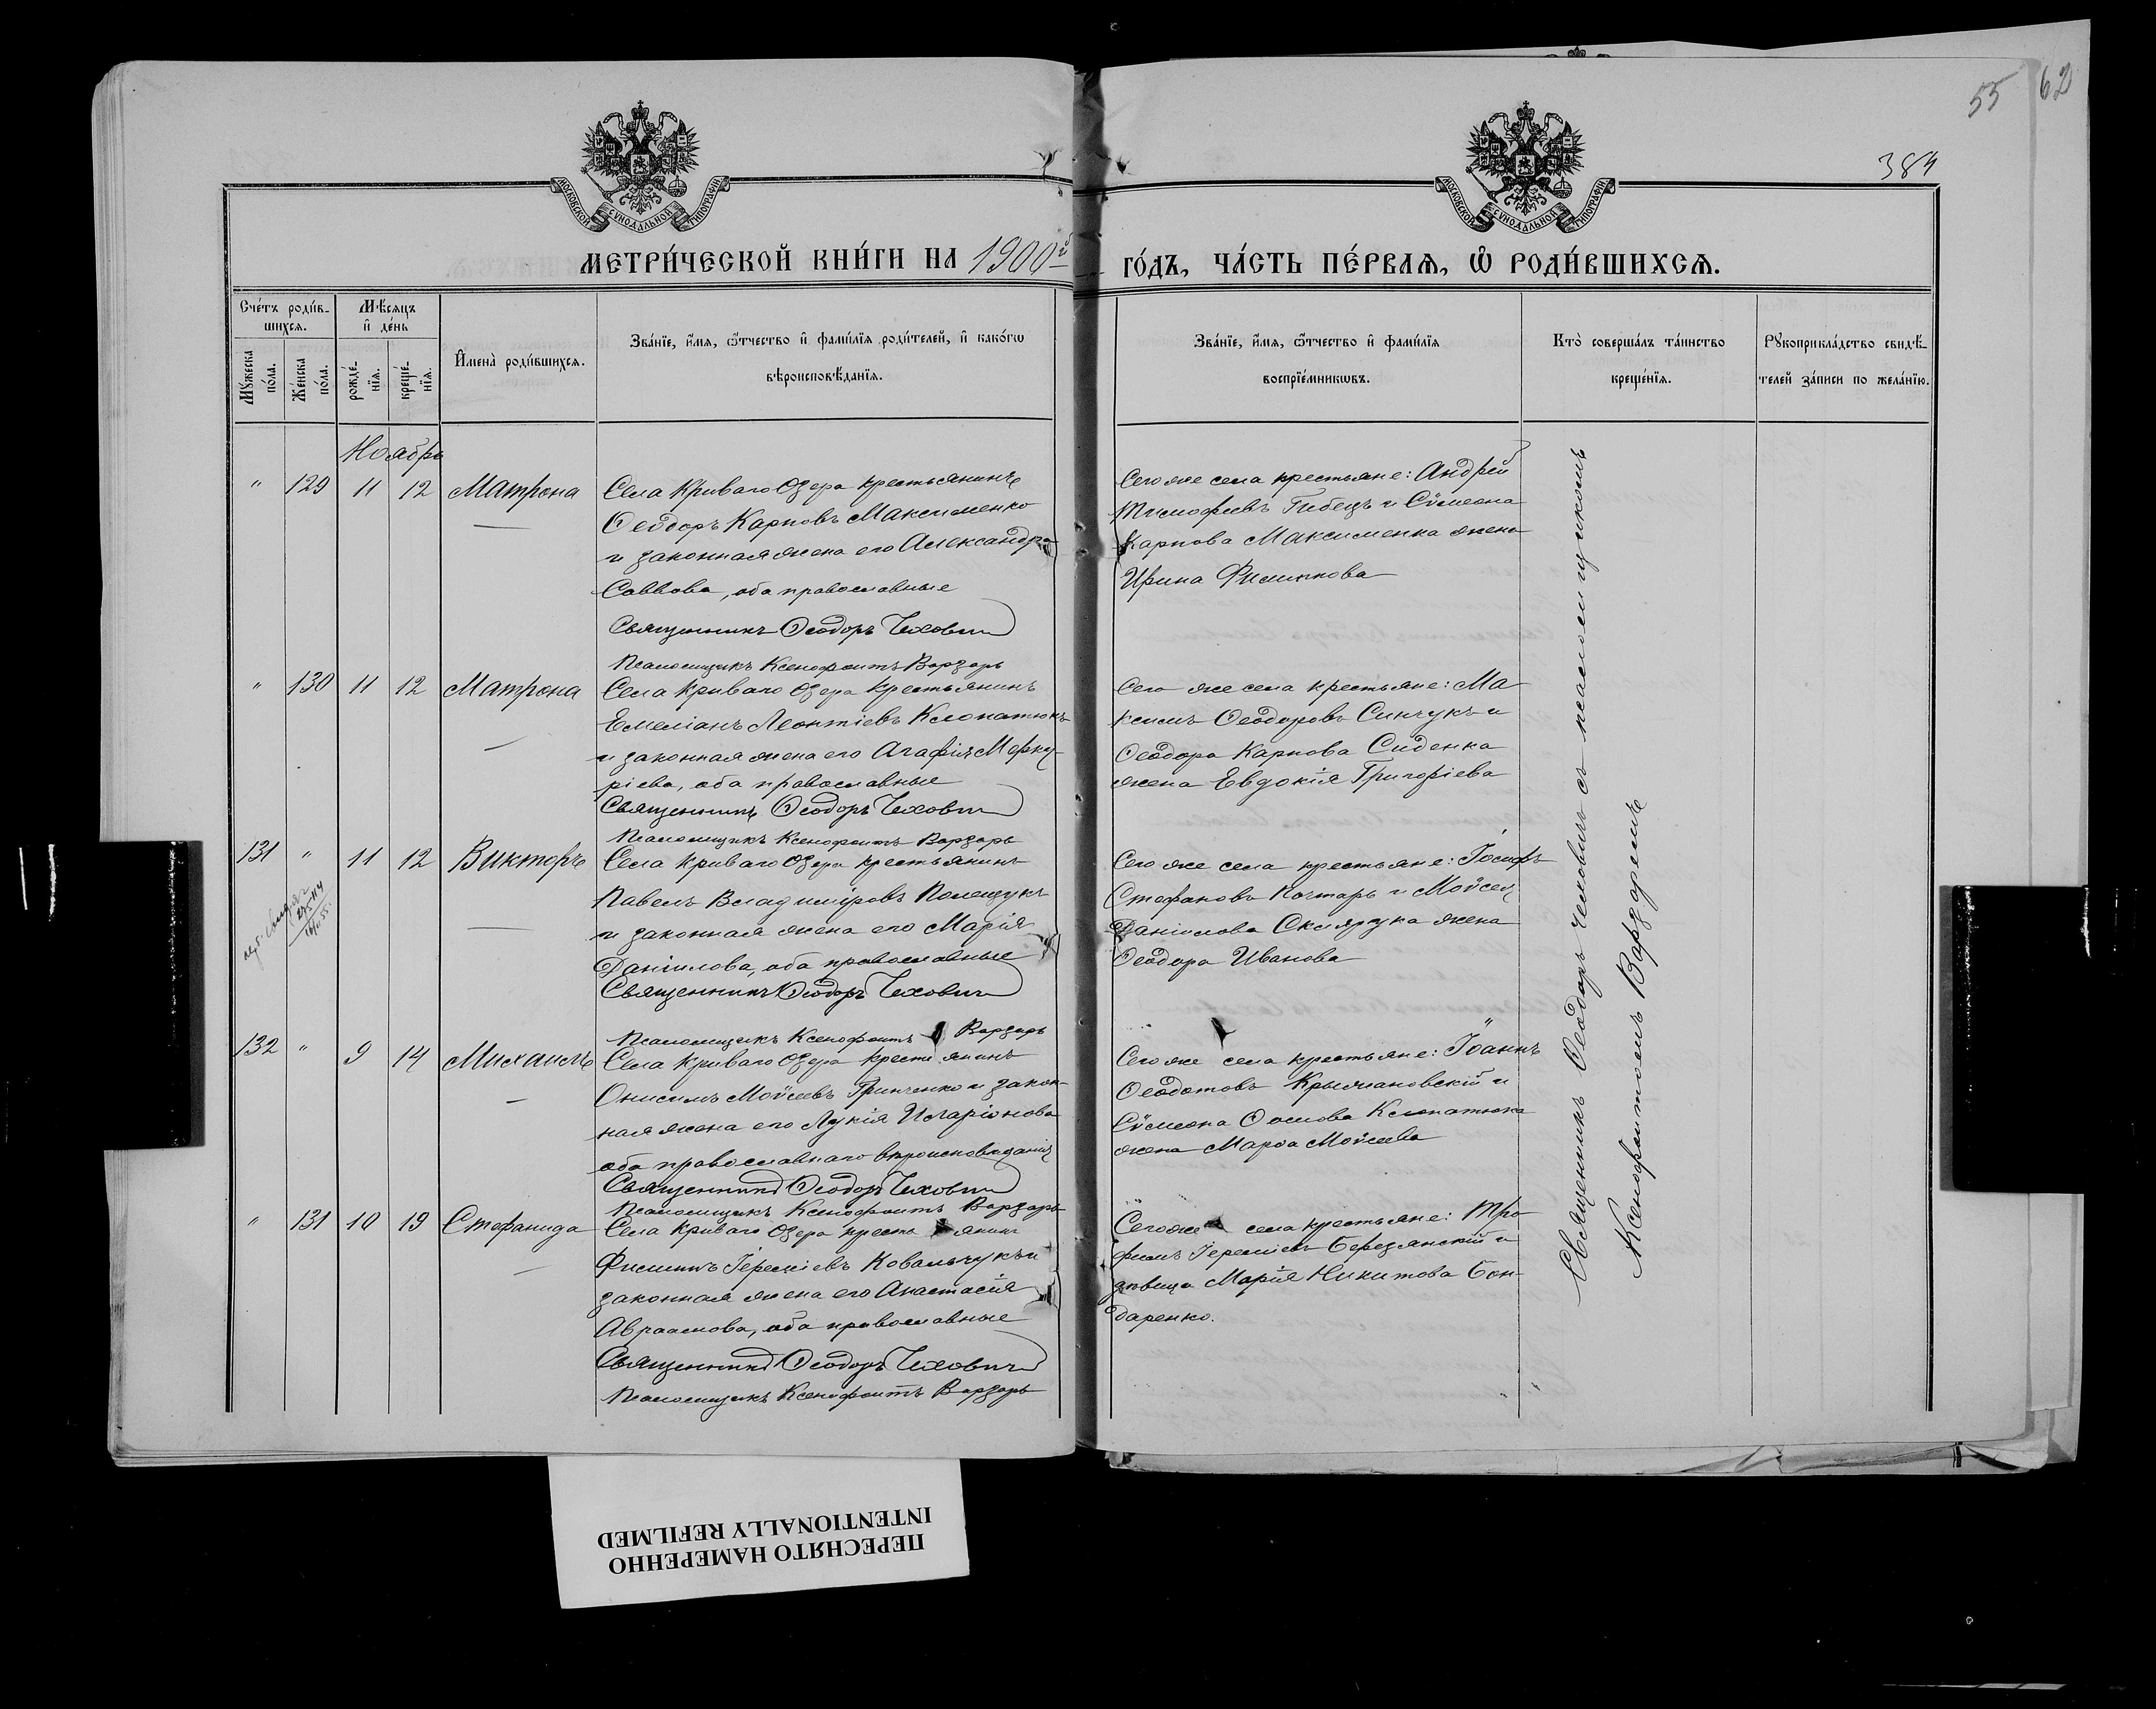 55
62
384
МОСКОВСКОЙ СѴНОДАЛЬНОЙ ТИПОГРАФІИ
МОСКОВСКОЙ СѴНОДАЛЬНОЙ ТИПОГРАФІИ
МЕТРИ́ЧЕСКОЙ КНИ́ГИ НА 1900й
ГО́ДЪ, ЧА́СТЬ ПЕ́РВАѦ, Ѡ҆ РОДИ́ВШИХСѦ.
Сче́тъ роди́в-
шихсѧ.
Мѣ́сѧцъ
и҆ де́нь
Мꙋ́жеска
по́ла.
Же́нска
по́ла.
рожде́-
нїѧ.
креще́-
нїѧ.
И҆мена̀ роди́вшихсѧ.
Зва́нїе, и҆́мѧ, ѻ҆́тчество и҆ фами́лїѧ роди́телей, и҆ како́гѡ
вѣроисповѣ́данїѧ.
Зва́нїе, и҆́мѧ, ѻ҆́тчество и҆ фами́лїѧ
воспрїе́мникѡвъ.
Кто̀ соверша́лъ та́инство
креще́нїѧ.
Рꙋкоприкла́дство свидѣ́-
телей за́писи по жела́нїю.
Ноябрь
" 129 11 12 Матрона
Села Криваго Озера крестьянинъ
Ѳеодоръ Карповъ Максименко
и законная жена его Александра
Саввова, оба православные
Священникъ Ѳеодоръ Чеховичъ
Псаломщикъ Ксенофонтъ Варзарь
Сего же села крестьяне: Андрей
Тимофеевъ Гибецъ и Сѵмеона
Карпова Максименка жена
Ирина Филиппова
" 130 11 12 Матрона
Села Криваго Озера крестьянинъ
Емеліанъ Леонтіевъ Клопатюкъ
и законная жена его Агафія Мерку-
ріева, оба православные
Священникъ Ѳеодоръ Чеховичъ
Псаломщикъ Ксенофонтъ Варзарь
Сего же села крестьяне: Ма-
ксимъ Ѳеодоровъ Синчукъ и
Ѳеодора Карпова Сиденка
жена Евдокія Григоріева
131 " 11 12 Викторъ
Села Криваго Озера крестьянинъ
Павелъ Владиміровъ Полещукъ
и законная жена его Марія
Даніилова, оба православные
Священникъ Ѳеодоръ Чеховичъ
Псаломщикъ Ксенофонтъ Варзарь
Сего же села крестьяне: Іосифъ
Стефановъ Кочтарь и Мойсея
Даніилова Склярука жена
Ѳеодора Иванова
132 " 9 14 Михаилъ
Села Криваго Озера крестьянинъ
Онисимъ Мойсеевъ Гринченко и закон-
ная жена его Лукія Иларіонова
оба православнаго вѣроисповѣданія
Священникъ Ѳеодоръ Чеховичъ
Псаломщикъ Ксенофонтъ Варзарь
Сего же села крестьяне: Іоаннъ
Ѳеодотовъ Крыжановскій и
Сѵмеона Ѳомова Клопатюка
жена Марѳа Мойсеева
" 131 10 19 Стефанида
Села Криваго Озера крестьянинъ
Филиппъ Іереміевъ Ковальчукъ и
законная жена его Анастасія
Авраамова, оба православные
Священникъ Ѳеодоръ Чеховичъ
Псаломщикъ Ксенофонтъ Варзарь
Сего же села крестьяне: Тро-
фимъ Іереміевъ Березянскій и
дѣвица Марія Никитова Бон-
даренко.
Священникъ Ѳеодоръ Чеховичъ съ псаломщикомъ
Ксенофонтомъ Варзаремъ
ПЕРЕСНЯТО НАМЕРЕННО
INTENTIONALLY REFILMED